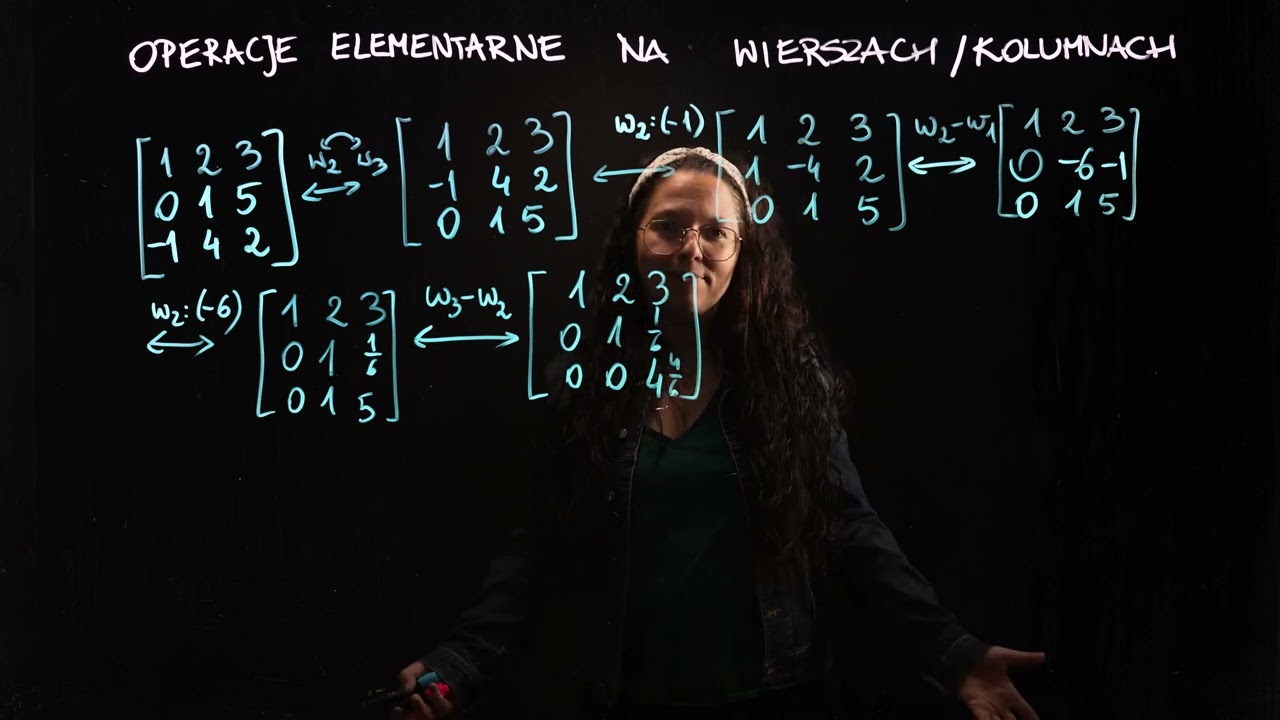 OPERACJE ELEMENTARNE NA WIERSZACH/KOLUMNACH
1 2 3
0 1 5
-1 4 2
w2 w3
1 2 3
-1 4 2
0 1 5
w2:(-1)
1 2 3
1 -4 2
0 1 5
w2-w1
1 2 3
0 -6 -1
0 1 5
w2:(-6)
1 2 3
0 1 1/6
0 1 5
w3-w2
1 2 3
0 1 1/6
0 0 4 4/6